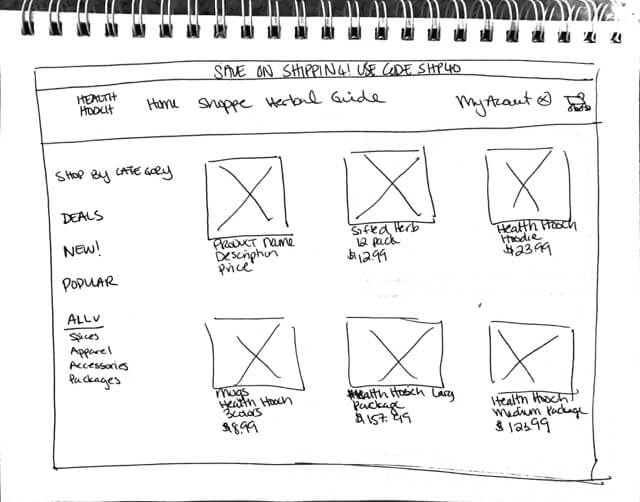 SAVE ON SHIPPING! USE CODE SHP40
HEALTH
HOOCH
Home Shoppe Herbal Guide
My Account
SHOP BY CATEGORY
DEALS
NEW!
POPULAR
ALL
Spices
Apparel
Accessories
Packages
PRODUCT Name
Description
Price
Sifted Herb
12 pack
$12.99
Health Hooch
Hoodie
$23.99
Mugs
Health Hooch
3 colors
$8.99
Health Hooch Larg
Package
$157.99
Health Hooch
Medium Package
$123.99